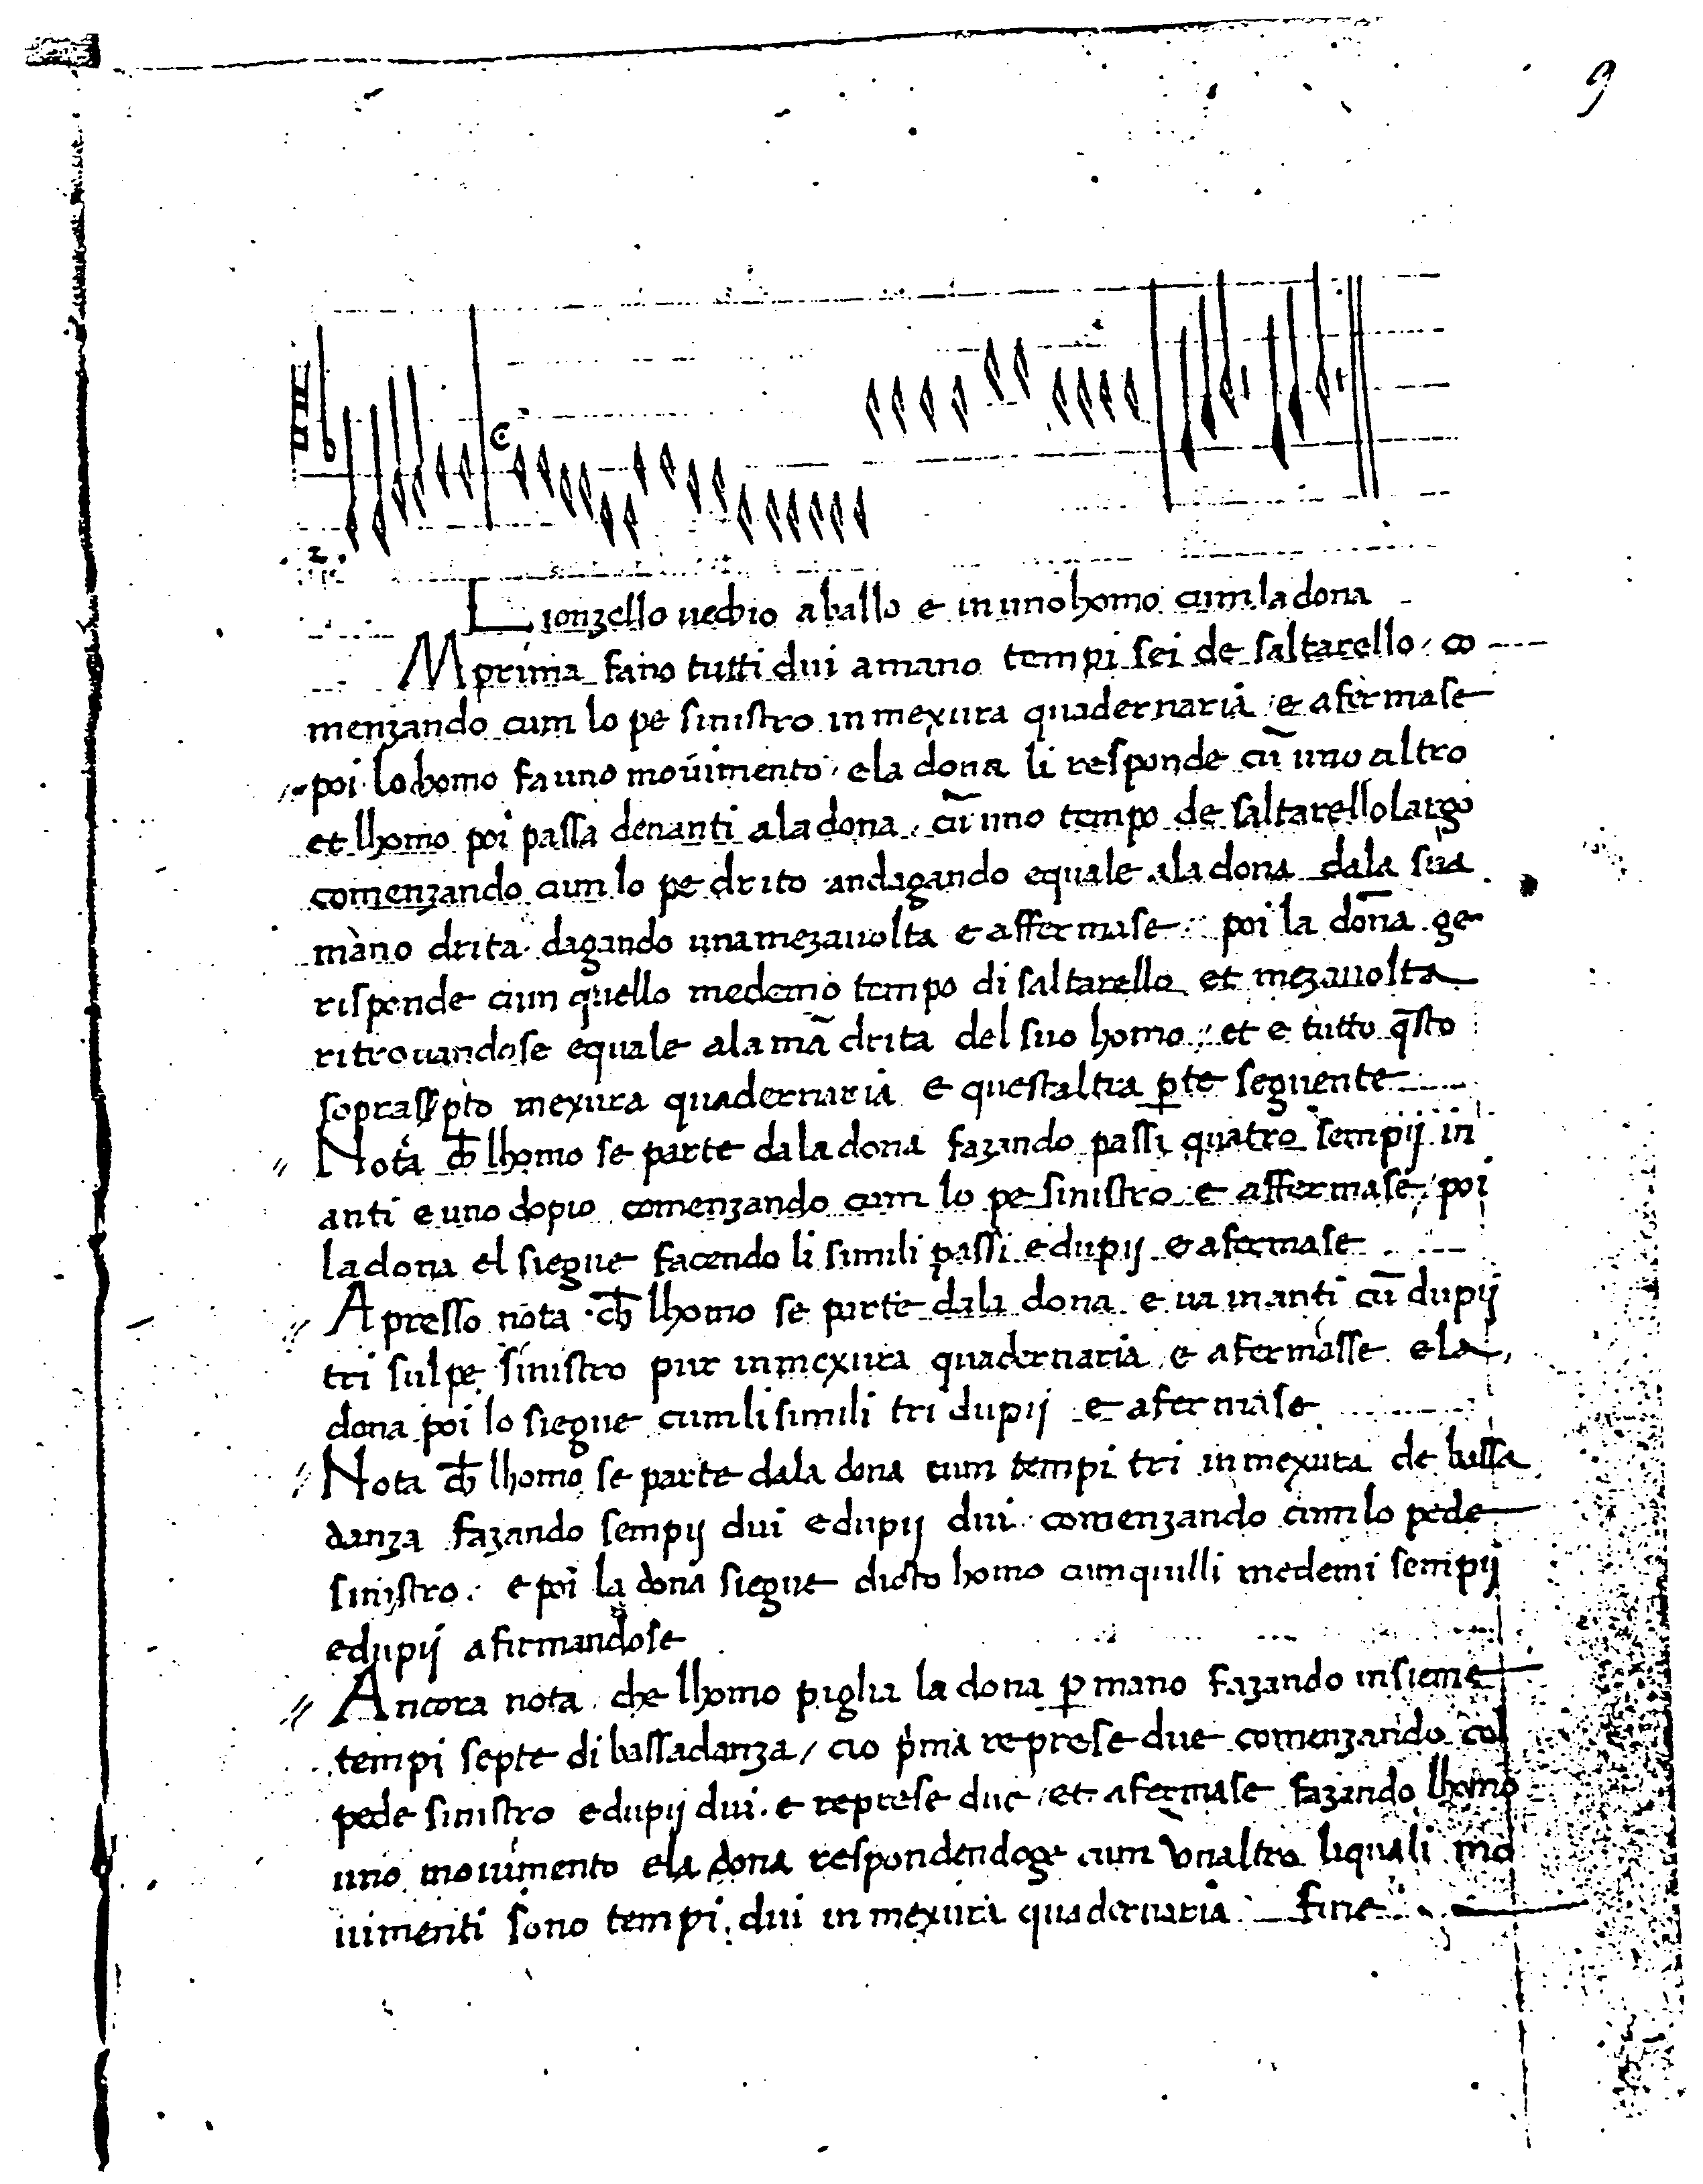 9
Lionzello uechio aballo e in uno homo cum la dona
Mprima fano tutti dui amano tempi sei de saltarello / co
menzando cum lo pe sinistro in mexura quadernaria / e afermase
poi lo homo fa uno mouimento / e la dona li responde cū uno altro
et lhomo poi passa denanti ala dona / cū uno tempo de saltarello largo
comenzando cum lo pe drito andagando equale ala dona dala sua
mano drita dagando una meza uolta e affermase poi la dona ge
risponde cum quello medemo tempo di saltarello et meza uolta
ritrouandose equale ala mā drita del suo homo / et e tutto q̄sto
mexura quadernaria e questaltra ꝑte seguente
Nota ch̄ lhomo se parte dala dona fazando passi quatro sempij in
anti e uno dopio comenzando cum lo pe sinistro e affermase / poi
la dona el siegue facendo li simili passi e dupij e afermase
Apresso nota ch̄ lhomo se parte dala dona e ua inanti cū dupij
tri sul pe sinistro pur in mexura quadernaria e afermasse e la
dona poi lo siegue cum li simili tri dupij e afermase
Nota ch̄ lhomo se parte dala dona cum tempi tri in mexura de bassa
danza fazando sempij dui e dupij dui comenzando cum lo pede
sinistro. e poi la dona siegue dicto homo cum quilli medemi sempij
e dupij afirmandose
Ancora nota che lhomo piglia la dona ꝑ mano fazando insieme
tempi septe di bassadanza / cio pma represe due comenzando col
pede sinistro e dupij dui. e represe due / et afermase fazando lhomo
uno mouimento e la dona respondendoge cum unaltro li quali mo
uimenti sono tempi dui in mexura quadernaria fine